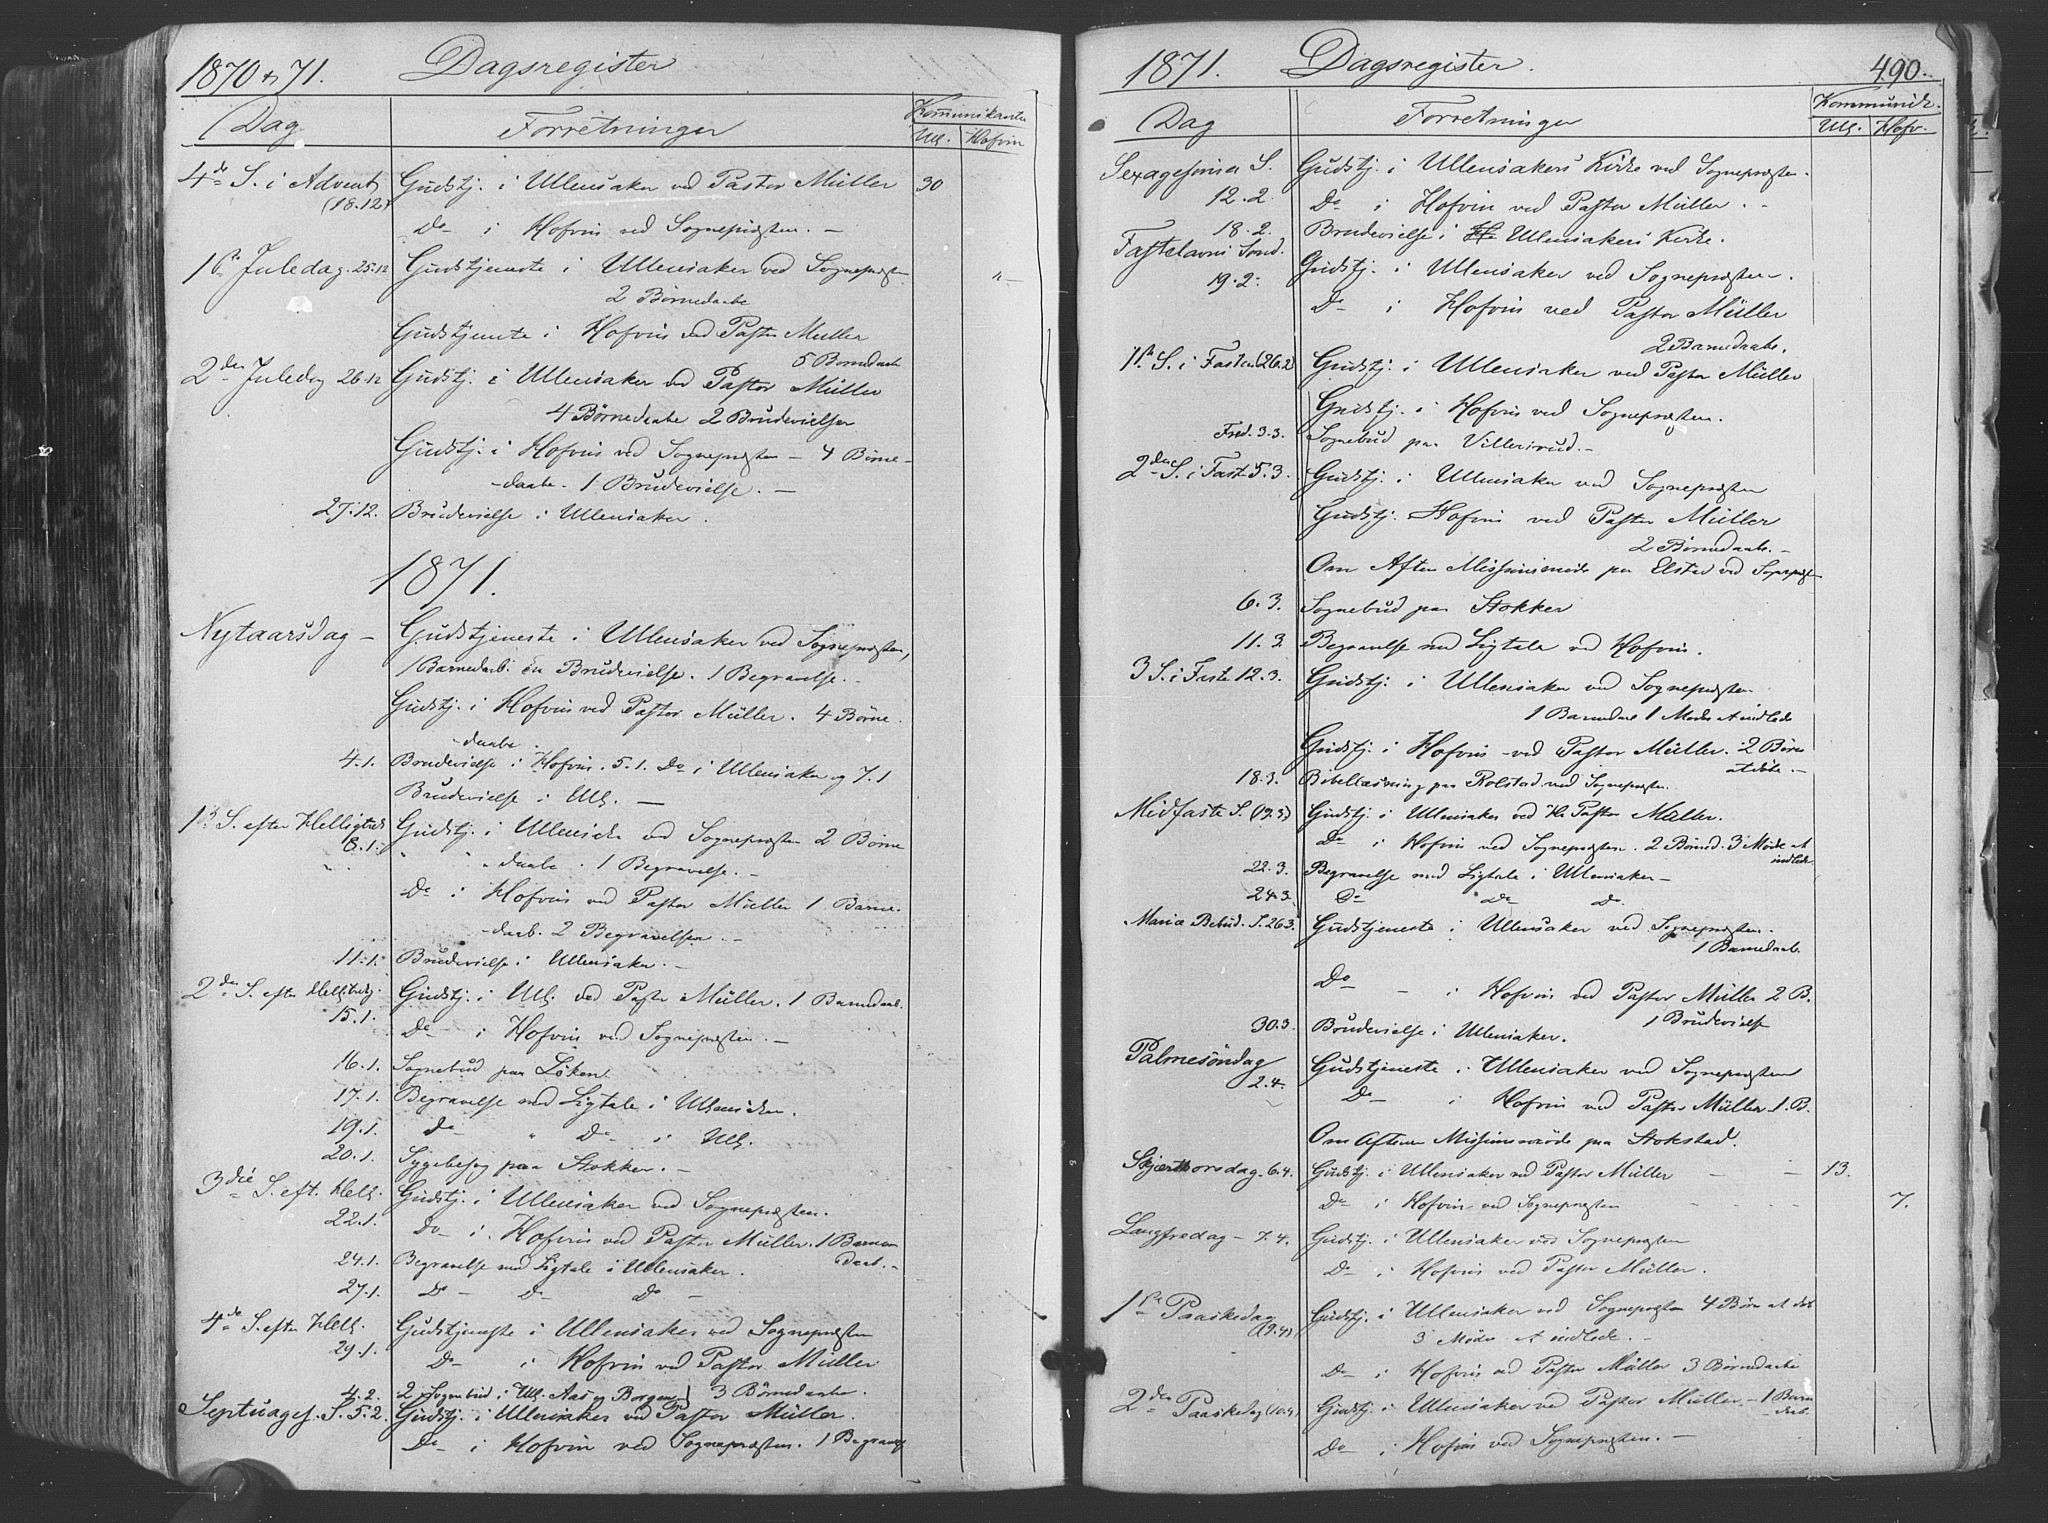 1870 & 71. Dagsregister
Dag Forretninger Kommunikanter
Ull. Hofvin
4de S. i Advent Gudstj. i Ullensaker ved Pastor Müller 30
(18.12)
Do i Hofvin ved Sognepræsten. –
1ste Juledag. 25.12 Gudstjeneste i Ullensaker ved Sognepræst
2 Børnedaabe
Gudstjeneste i Hofvin ved Pastor Müller
5 Børnedaabe
2den Juledag 26.12 Gudstj. i Ullensaker ved Pastor Müller
4 Børnedaabe 2 Brudevielser
Gudstj. i Hofvin ved Sognepræsten – 4 Børne-
-daabe. 1 Brudevielse. –
27.12. Brudevielse i Ullensaker.
1871.
Nytaarsdag – Gudstjeneste i Ullensaker ved Sognepræsten,
1 Barnedaab. en Brudevielse. 1 Begravelse. –
Gudstj. i Hofvin ved Pastor Müller. 4 Børne-
-daabe.
4.1. Brudevielse i Hofvin. 5.1. Do i Ullensaker og 7.1
Brudevielse i Ull. –
1ste S. efter Helligtrek Gudstj. i Ullensaker ved Sognepræsten 2 Børne
8.1. -daabe. 1 Begravelse. –
Do i Hofvin ved Pastor Müller 1 Barne-
-daab. 2 Begravelser. –
11.1. Brudevielse i Ullensaker. –
2den S. efter Helligtrek. Gudstj. i Ull. ved Pastor Müller. 1 Barnedaab.
15.1. Do – i Hofvin ved Sognepræsten. –
16.1. Sognebud paa Løken.
17.1. Begravelse med Ligtale i Ullensaker.
19.1. do " Do – i Ull.
20.1. Sygebesøg paa Stokker. –
3die S. eft. Hell. Gudstj. i Ullensaker ved Sognepræsten.
22.1. Do – i Hofvin ved Pastor Müller. 1 Barne
daab. –
24.1. Begravelse med Ligtale i Ullensaker.
27.1. Do – Do Do –
4de S. efter Hell. Gudstjeneste i Ullensaker ved Sognepræsten
29.1. Do i Hofvin ved Pastor Müller
4.2. 2 Sognebud i Ull. Aas og Borgen 3 Børnedaabe.
Septuages. S. 5.2. Gudstj. i Ullensaker ved Pastor Müller.
Do – i Hofvin ved Sognepræsten. 1 Begravels
1871. Dagsregister. 490.
Dag Forretninger Kommunik.
Ull. Hofv.
Sexagesima S. Gudstj. i Ullensakers Kirke ved Sognepræsten.
12.2. Do i Hofvin ved Pastor Müller. –
18.2. Brudevielse i Ullensakers Kirke.
Fastelavns Sønd. Gudstj. i Ullensaker ved Sognepræsten.
19.2. Do i Hofvin ved Pastor Müller
2 Barnedaabe.
1ste S. i Fasten (26.2) Gudstj. i Ullensaker ved Pastor Müller
Gudstj. i Hofvin ved Sognepræsten.
Fred. 3.3. Sognebud paa Villersrud. –
2den S. i Faste 5.3. Gudstj. i Ullensaker ved Sognepræsten
Gudstj. Hofvin ved Pastor Müller
2 Børnedaabe. –
Om Aften Missionsmøde paa Elstad ved Sognepræst
6.3. Sognebud paa Stokker
11.3 Begravelse med Ligtale ved Hofvin.
3 S. i Faste 12.3. Gudstj. i Ullensaker ved Sognepræsten
1 Barnedaab 1 Moder at indlede
Gudstj. i Hofvin ved Pastor Müller. 2 Børn
at døbe. –
18.3. Bibellæsning paa Rolstad ved Sognepræsten.
Midfaste S. (19.3) Gudstj. i Ullensaker ved Hr Pastor Müller.
Do i Hofvin ved Sognepræsten. 2 Børned. 3 Mødre at
indlede
22.3. Begravelse med Ligtale i Ullensaker –
24.3. Do " Do Do.
Maria Bebud. S. 26.3. Gudstjeneste i Ullensaker ved Sognepræsten.
1 Barnedaab.
Do – i Hofvin ved Pastor Müller 2 B.
1 Brudevielse
30.3. Brudevielse i Ullensaker.
Palmesöndag Gudstjeneste i Ullensaker ved Sognepræsten
2.4. Do – i Hofvin ved Pastor Müller 1.B.
Om Aftenen Missionsmöde paa Stokstad.
Skjærthorsdag. 6.4. Gudstj. i Ullensaker ved Pastor Müller – – 13.
Do – i Hofvin ved Sognepræsten 7.
Langfredag – 7.4. Gudstj. i Ullensaker ved Sognepræsten
Do – i Hofvin ved Pastor Müller.
1ste Paaskedag Gudstj. i Ullensaker ved Sognepræsten 4 Børn at døbe
(9.4) 3 Mødre at indlede. –
Do – i Hofvin ved Pastor Müller 3 Børnedaabe
2den Paaskedag (10.4) Gudstj. i Ullensaker ved Pastor Müller – 1 Barne
daab.
Do – i Hofvin ved Sognepræsten. –